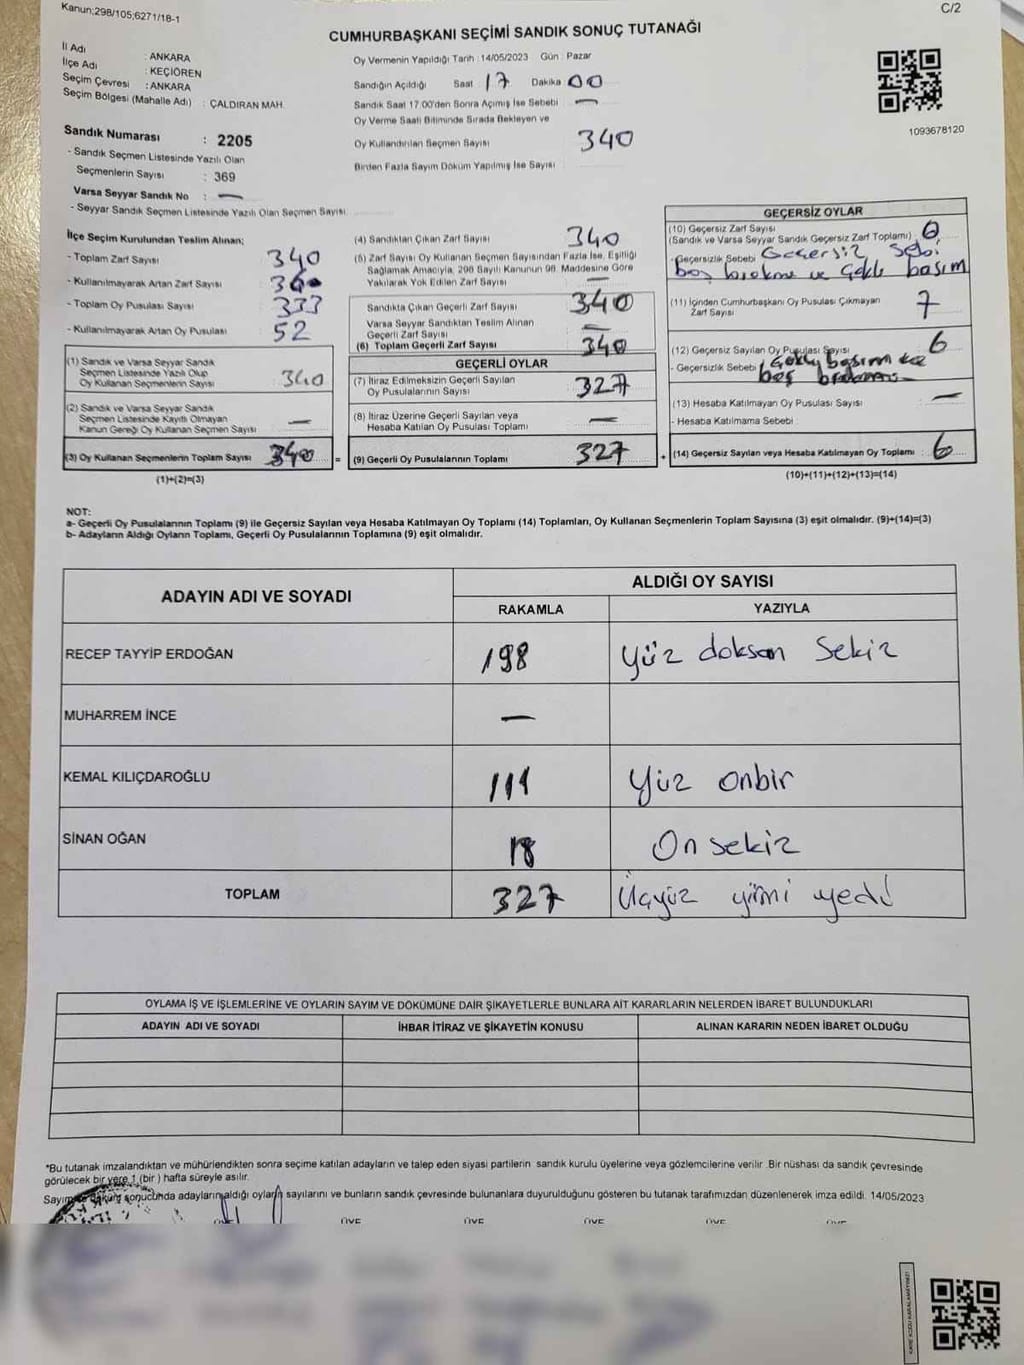 Kanun;298/105;6271/18-1
C/2
CUMHURBAŞKANI SEÇİMİ SANDIK SONUÇ TUTANAĞI
İl Adı : ANKARA
İlçe Adı : KEÇİÖREN
Seçim Çevresi : ANKARA
Seçim Bölgesi (Mahalle Adı) : ÇALDIRAN MAH.
Sandık Numarası : 2205
- Sandık Seçmen Listesinde Yazılı Olan
Seçmenlerin Sayısı : 369
Varsa Seyyar Sandık No : —
- Seyyar Sandık Seçmen Listesinde Yazılı Olan Seçmen Sayısı
Oy Vermenin Yapıldığı Tarih : 14/05/2023 Gün : Pazar
Sandığın Açıldığı Saat 17 Dakika 00
Sandık Saat 17.00'den Sonra Açımış İse Sebebi —
Oy Verme Saati Bitiminde Sırada Bekleyen ve
Oy Kullandırılan Seçmen Sayısı 340
Birden Fazla Sayım Döküm Yapılmış İse Sayısı
1093678120
İlçe Seçim Kurulundan Teslim Alınan;
- Toplam Zarf Sayısı 340
- Kullanılmayarak Artan Zarf Sayısı
- Toplam Oy Pusulası Sayısı 333
- Kullanılmayarak Artan Oy Pusulası 52
(1) Sandık ve Varsa Seyyar Sandık
Seçmen Listesinde Yazılı Olup
Oy Kullanan Seçmenlerin Sayısı 340
(2) Sandık ve Varsa Seyyar Sandık
Seçmen Listesinde Kayıtlı Olmayan
Kanun Gereği Oy Kullanan Seçmen Sayısı —
(3) Oy Kullanan Seçmenlerin Toplam Sayısı 340 =
(1)+(2)=(3)
(4) Sandıktan Çıkan Zarf Sayısı 340
(5) Zarf Sayısı Oy Kullanan Seçmen Sayısından Fazla İse, Eşitliği
Sağlamak Amacıyla, 298 Sayılı Kanunun 98. Maddesine Göre
Yakılarak Yok Edilen Zarf Sayısı —
Sandıkta Çıkan Geçerli Zarf Sayısı 340
Varsa Seyyar Sandıktan Teslim Alınan
Geçerli Zarf Sayısı —
(6) Toplam Geçerli Zarf Sayısı 340
GEÇERLİ OYLAR
(7) İtiraz Edilmeksizin Geçerli Sayılan
Oy Pusulalarının Sayısı 327
(8) İtiraz Üzerine Geçerli Sayılan veya
Hesaba Katılan Oy Pusulası Toplamı —
(9) Geçerli Oy Pusulalarının Toplamı 327 +
GEÇERSİZ OYLAR
(10) Geçersiz Zarf Sayısı
(Sandık ve Varsa Seyyar Sandık Geçersiz Zarf Toplamı) :
- Geçersizlik Sebebi Geçersiz sebi
boş bırakma ve çoklu basım
(11) İçinden Cumhurbaşkanı Oy Pusulası Çıkmayan
Zarf Sayısı 7
(12) Geçersiz Sayılan Oy Pusulası Sayısı 6
- Geçersizlik Sebebi
(13) Hesaba Katılmayan Oy Pusulası Sayısı —
- Hesaba Katılmama Sebebi
(14) Geçersiz Sayılan veya Hesaba Katılmayan Oy Toplamı : 6
(10)+(11)+(12)+(13)=(14)
NOT:
a- Geçerli Oy Pusulalarının Toplamı (9) ile Geçersiz Sayılan veya Hesaba Katılmayan Oy Toplamı (14) Toplamları, Oy Kullanan Seçmenlerin Toplam Sayısına (3) eşit olmalıdır. (9)+(14)=(3)
b- Adayların Aldığı Oyların Toplamı, Geçerli Oy Pusulalarının Toplamına (9) eşit olmalıdır.
ADAYIN ADI VE SOYADI
ALDIĞI OY SAYISI
RAKAMLA YAZIYLA
RECEP TAYYİP ERDOĞAN 198 Yüz doksan sekiz
MUHARREM İNCE —
KEMAL KILIÇDAROĞLU 111 Yüz onbir
SİNAN OĞAN 18 On sekiz
TOPLAM 327 Üçyüz yirmi yedi
OYLAMA İŞ VE İŞLEMLERİNE VE OYLARIN SAYIM VE DÖKÜMÜNE DAİR ŞİKAYETLERLE BUNLARA AİT KARARLARIN NELERDEN İBARET BULUNDUKLARI
ADAYIN ADI VE SOYADI İHBAR İTİRAZ VE ŞİKAYETİN KONUSU ALINAN KARARIN NEDEN İBARET OLDUĞU
*Bu tutanak imzalandıktan ve mühürlendikten sonra seçime katılan adayların ve talep eden siyasi partilerin sandık kurulu üyelerine veya gözlemcilerine verilir. Bir nüshası da sandık çevresinde
görülecek bir yere 1 (bir) hafta süreyle asılır.
Sayım sonucunda adayların aldığı oyların sayılarını ve bunların sandık çevresinde bulunanlara duyurulduğunu gösteren bu tutanak tarafımızdan düzenlenerek imza edildi. 14/05/2023
ÜYE ÜYE ÜYE ÜYE